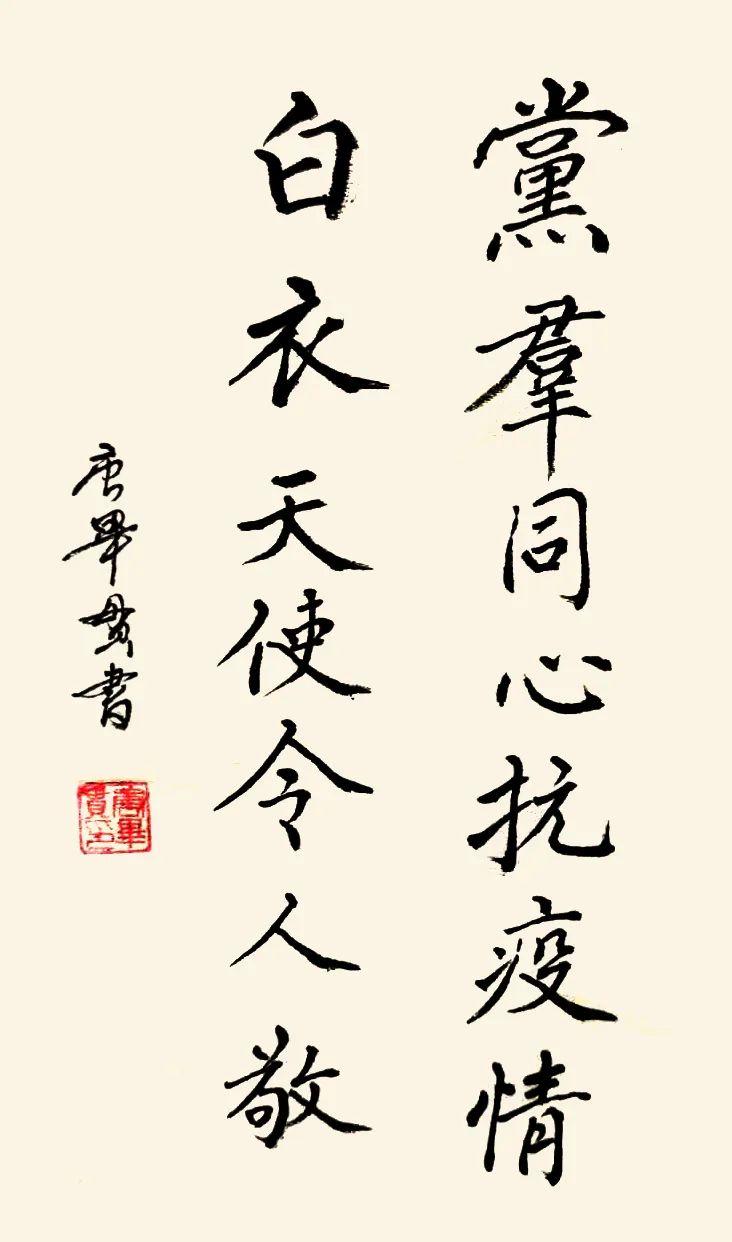 黨羣同心抗疫情
白衣天使令人敬
唐畢貫書
唐畢貫印